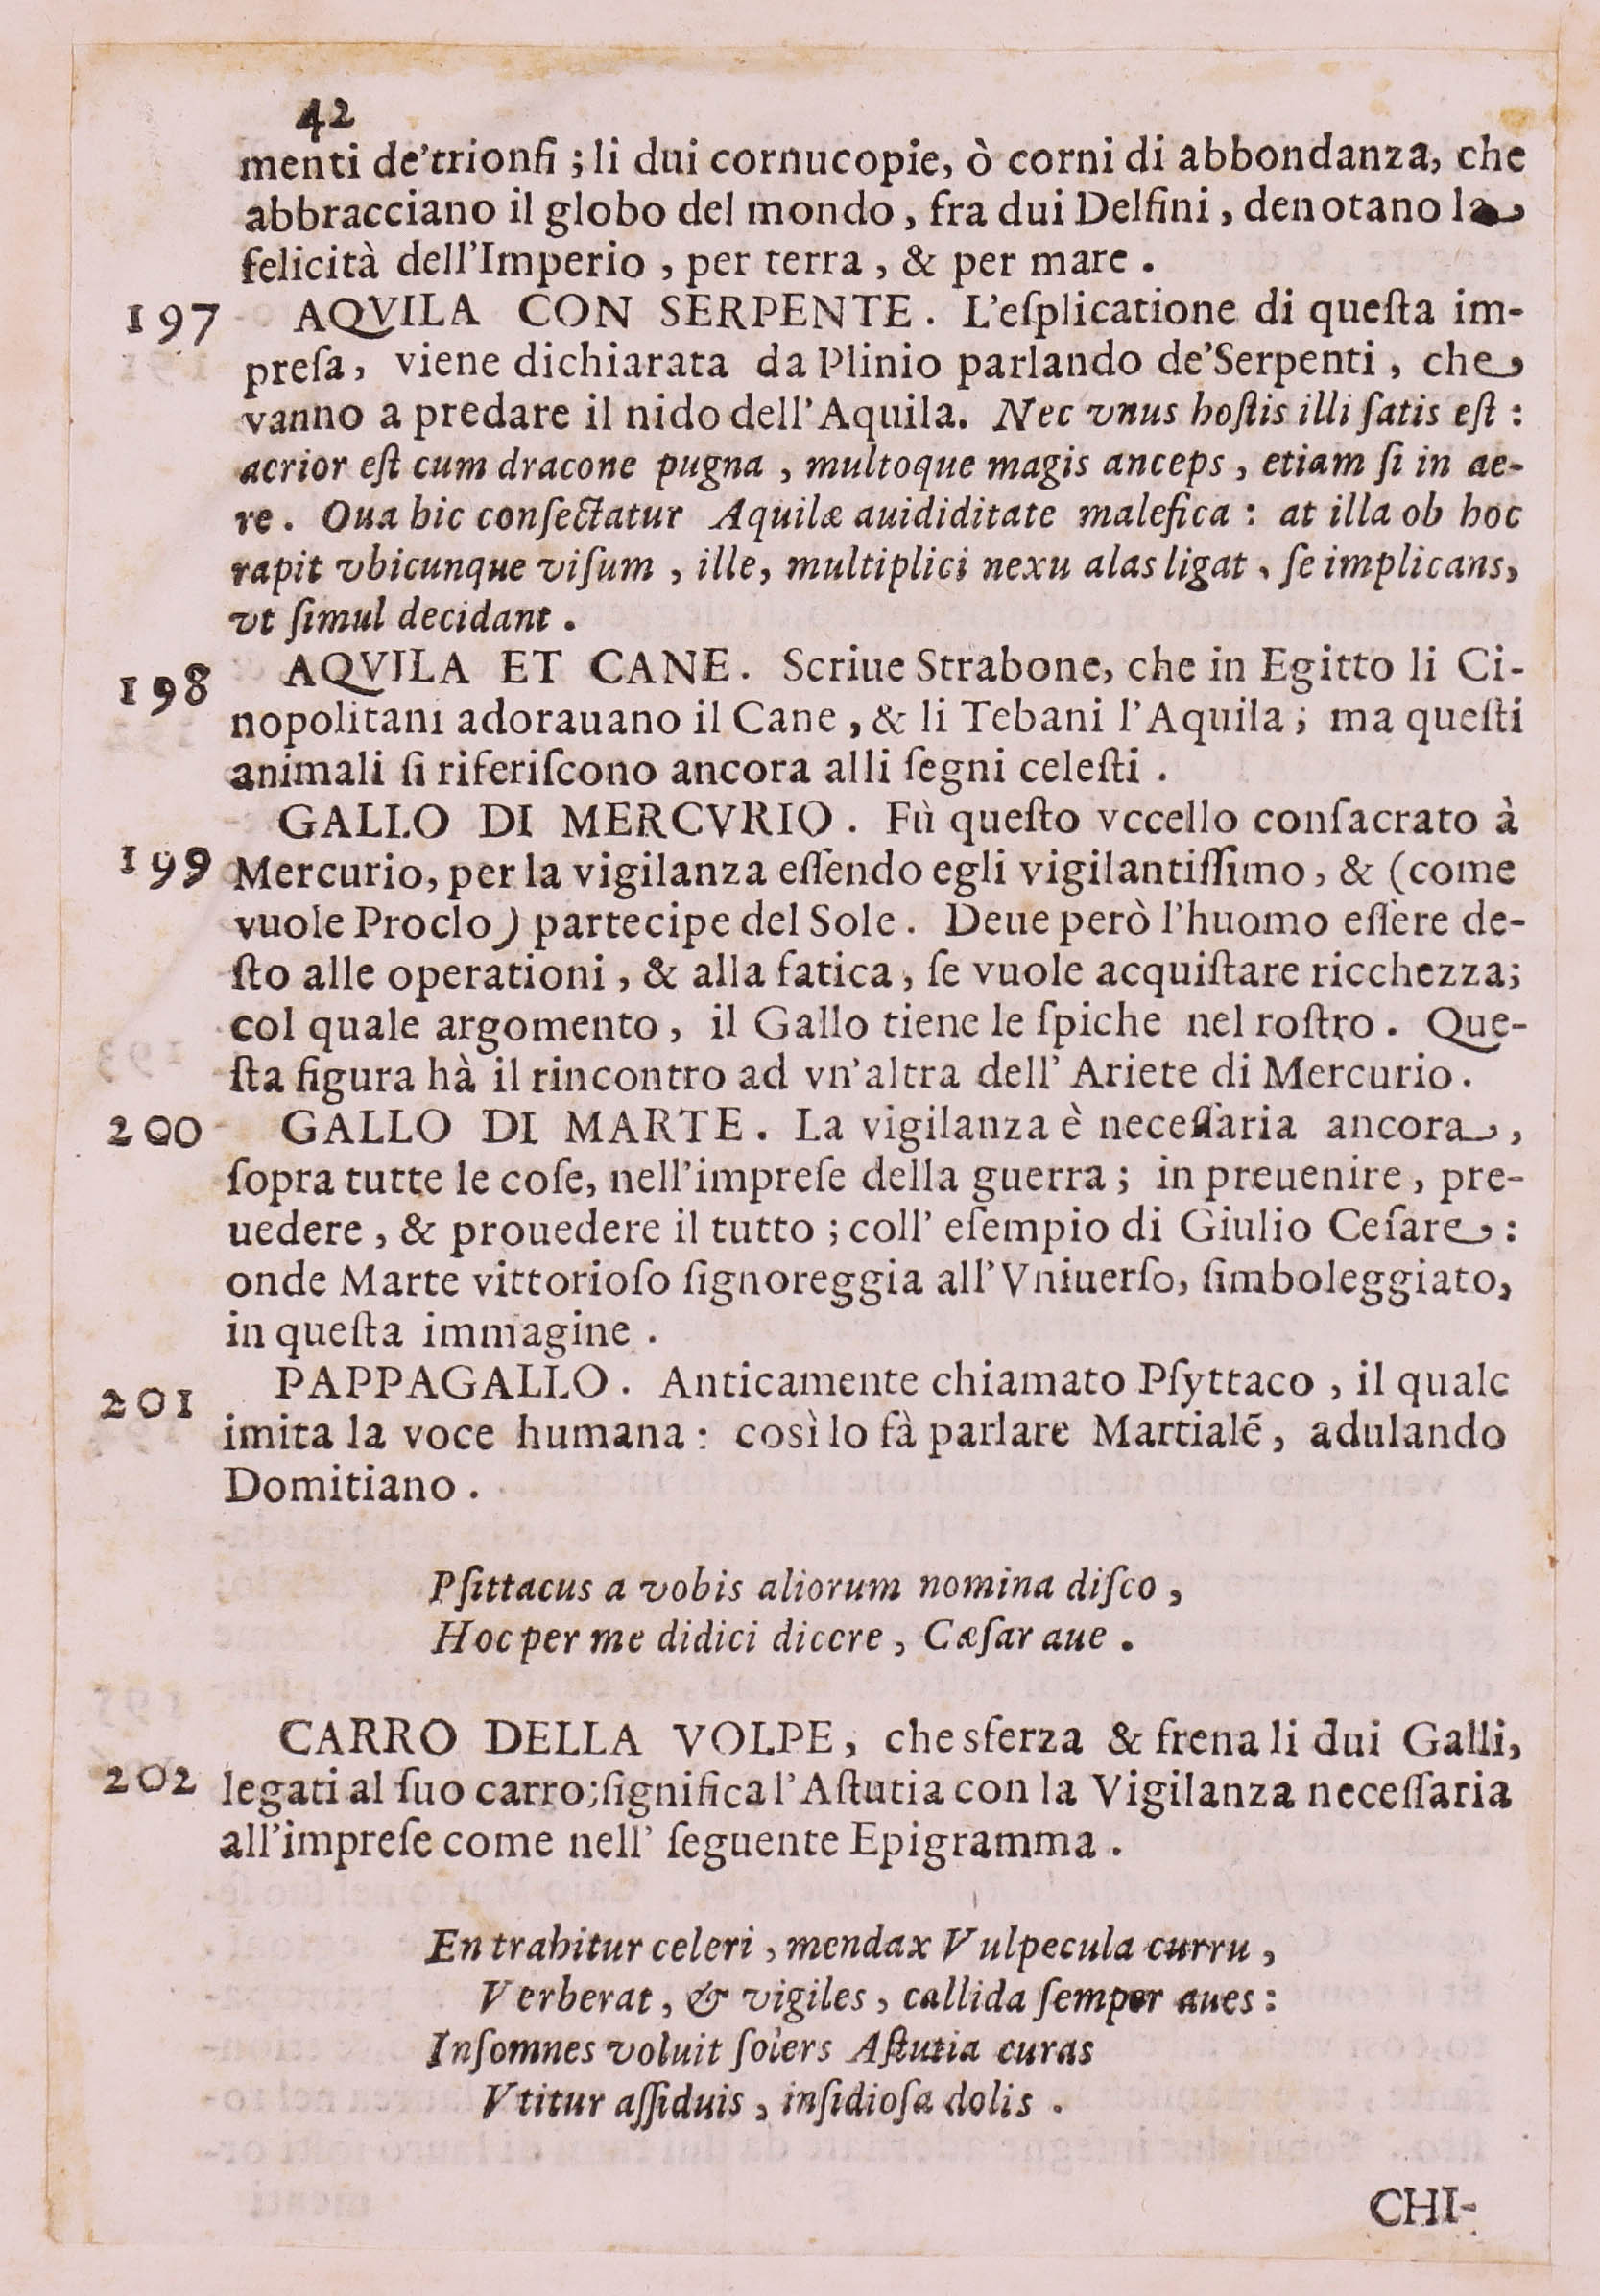 42
menti de'trionfi ; li dui cornucopie, ò corni di abbondanza, che
abbracciano il globo del mondo , fra dui Delfini , denotano la
felicità dell'Imperio , per terra , & per mare .
197 AQVILA CON SERPENTE . L'eſplicatione di queſta im-
preſa, viene dichiarata da Plinio parlando de'Serpenti , che
vanno a predare il nido dell'Aquila. Nec vnus hoſtis illi ſatis eſt :
acrior eſt cum dracone pugna , multoque magis anceps , etiam ſi in ae-
re . Oua hic conſectatur Aquilæ auididitate malefica : at illa ob hoc
rapit vbicunque viſum , ille, multiplici nexu alas ligat , ſe implicans,
vt ſimul decidant .
198 AQVILA ET CANE . Scriue Strabone, che in Egitto li Ci-
nopolitani adorauano il Cane , & li Tebani l'Aquila ; ma queſti
animali ſi riferiſcono ancora alli ſegni celeſti .
GALLO DI MERCVRIO . Fù queſto vccello conſacrato à
199 Mercurio, per la vigilanza eſſendo egli vigilantiſſimo , & (come
vuole Proclo) partecipe del Sole . Deue però l'huomo eſſere de-
ſto alle operationi , & alla fatica , ſe vuole acquiſtare ricchezza;
col quale argomento , il Gallo tiene le ſpiche nel roſtro . Que-
ſta figura hà il rincontro ad vn'altra dell' Ariete di Mercurio .
200 GALLO DI MARTE . La vigilanza è neceſſaria ancora ,
ſopra tutte le coſe, nell'impreſe della guerra ; in preuenire , pre-
uedere , & prouedere il tutto ; coll' eſempio di Giulio Ceſare :
onde Marte vittorioſo ſignoreggia all'Vniuerſo, ſimboleggiato,
in queſta immagine .
201 PAPPAGALLO . Anticamente chiamato Pſyttaco , il quale
imita la voce humana : così lo fà parlare Martialē , adulando
Domitiano .
Pſittacus a vobis aliorum nomina diſco ,
Hoc per me didici dicere , Cæſar aue .
CARRO DELLA VOLPE , che sferza & frena li dui Galli,
202 legati al ſuo carro;ſignifica l'Aſtutia con la Vigilanza neceſſaria
all'impreſe come nell' ſeguente Epigramma .
En trahitur celeri , mendax Vulpecula curru ,
Verberat , & vigiles , callida ſemper aues :
Inſomnes voluit ſolers Aſtutia curas
Vtitur aſſiduis , inſidioſa dolis .
CHI-